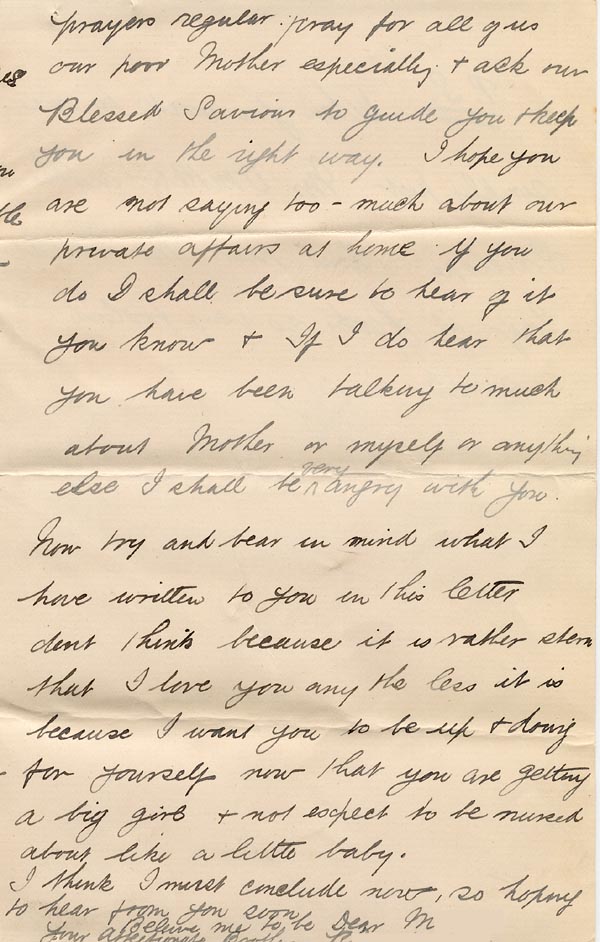 prayers regular. pray for all of us
our poor Mother especially & ask our
Blessed Saviour to guide you & keep
you in the right way. I hope you
are not saying too - much about our
private affairs at home if you
do I shall be sure to hear of it
you know & If I do hear that
you have been talking to much
about Mother or myself or anything
else I shall be very angry with you.
Now try and bear in mind what I
have written to you in this letter
dont think because it is rather stern
that I love you any the less it is
because I want you to be up & doing
for yourself now that you are getting
a big girl & not expect to be nursed
about like a little baby.
I think I must conclude now, so hoping
to hear from you soon
Believe me to be Dear M
Your affectionate